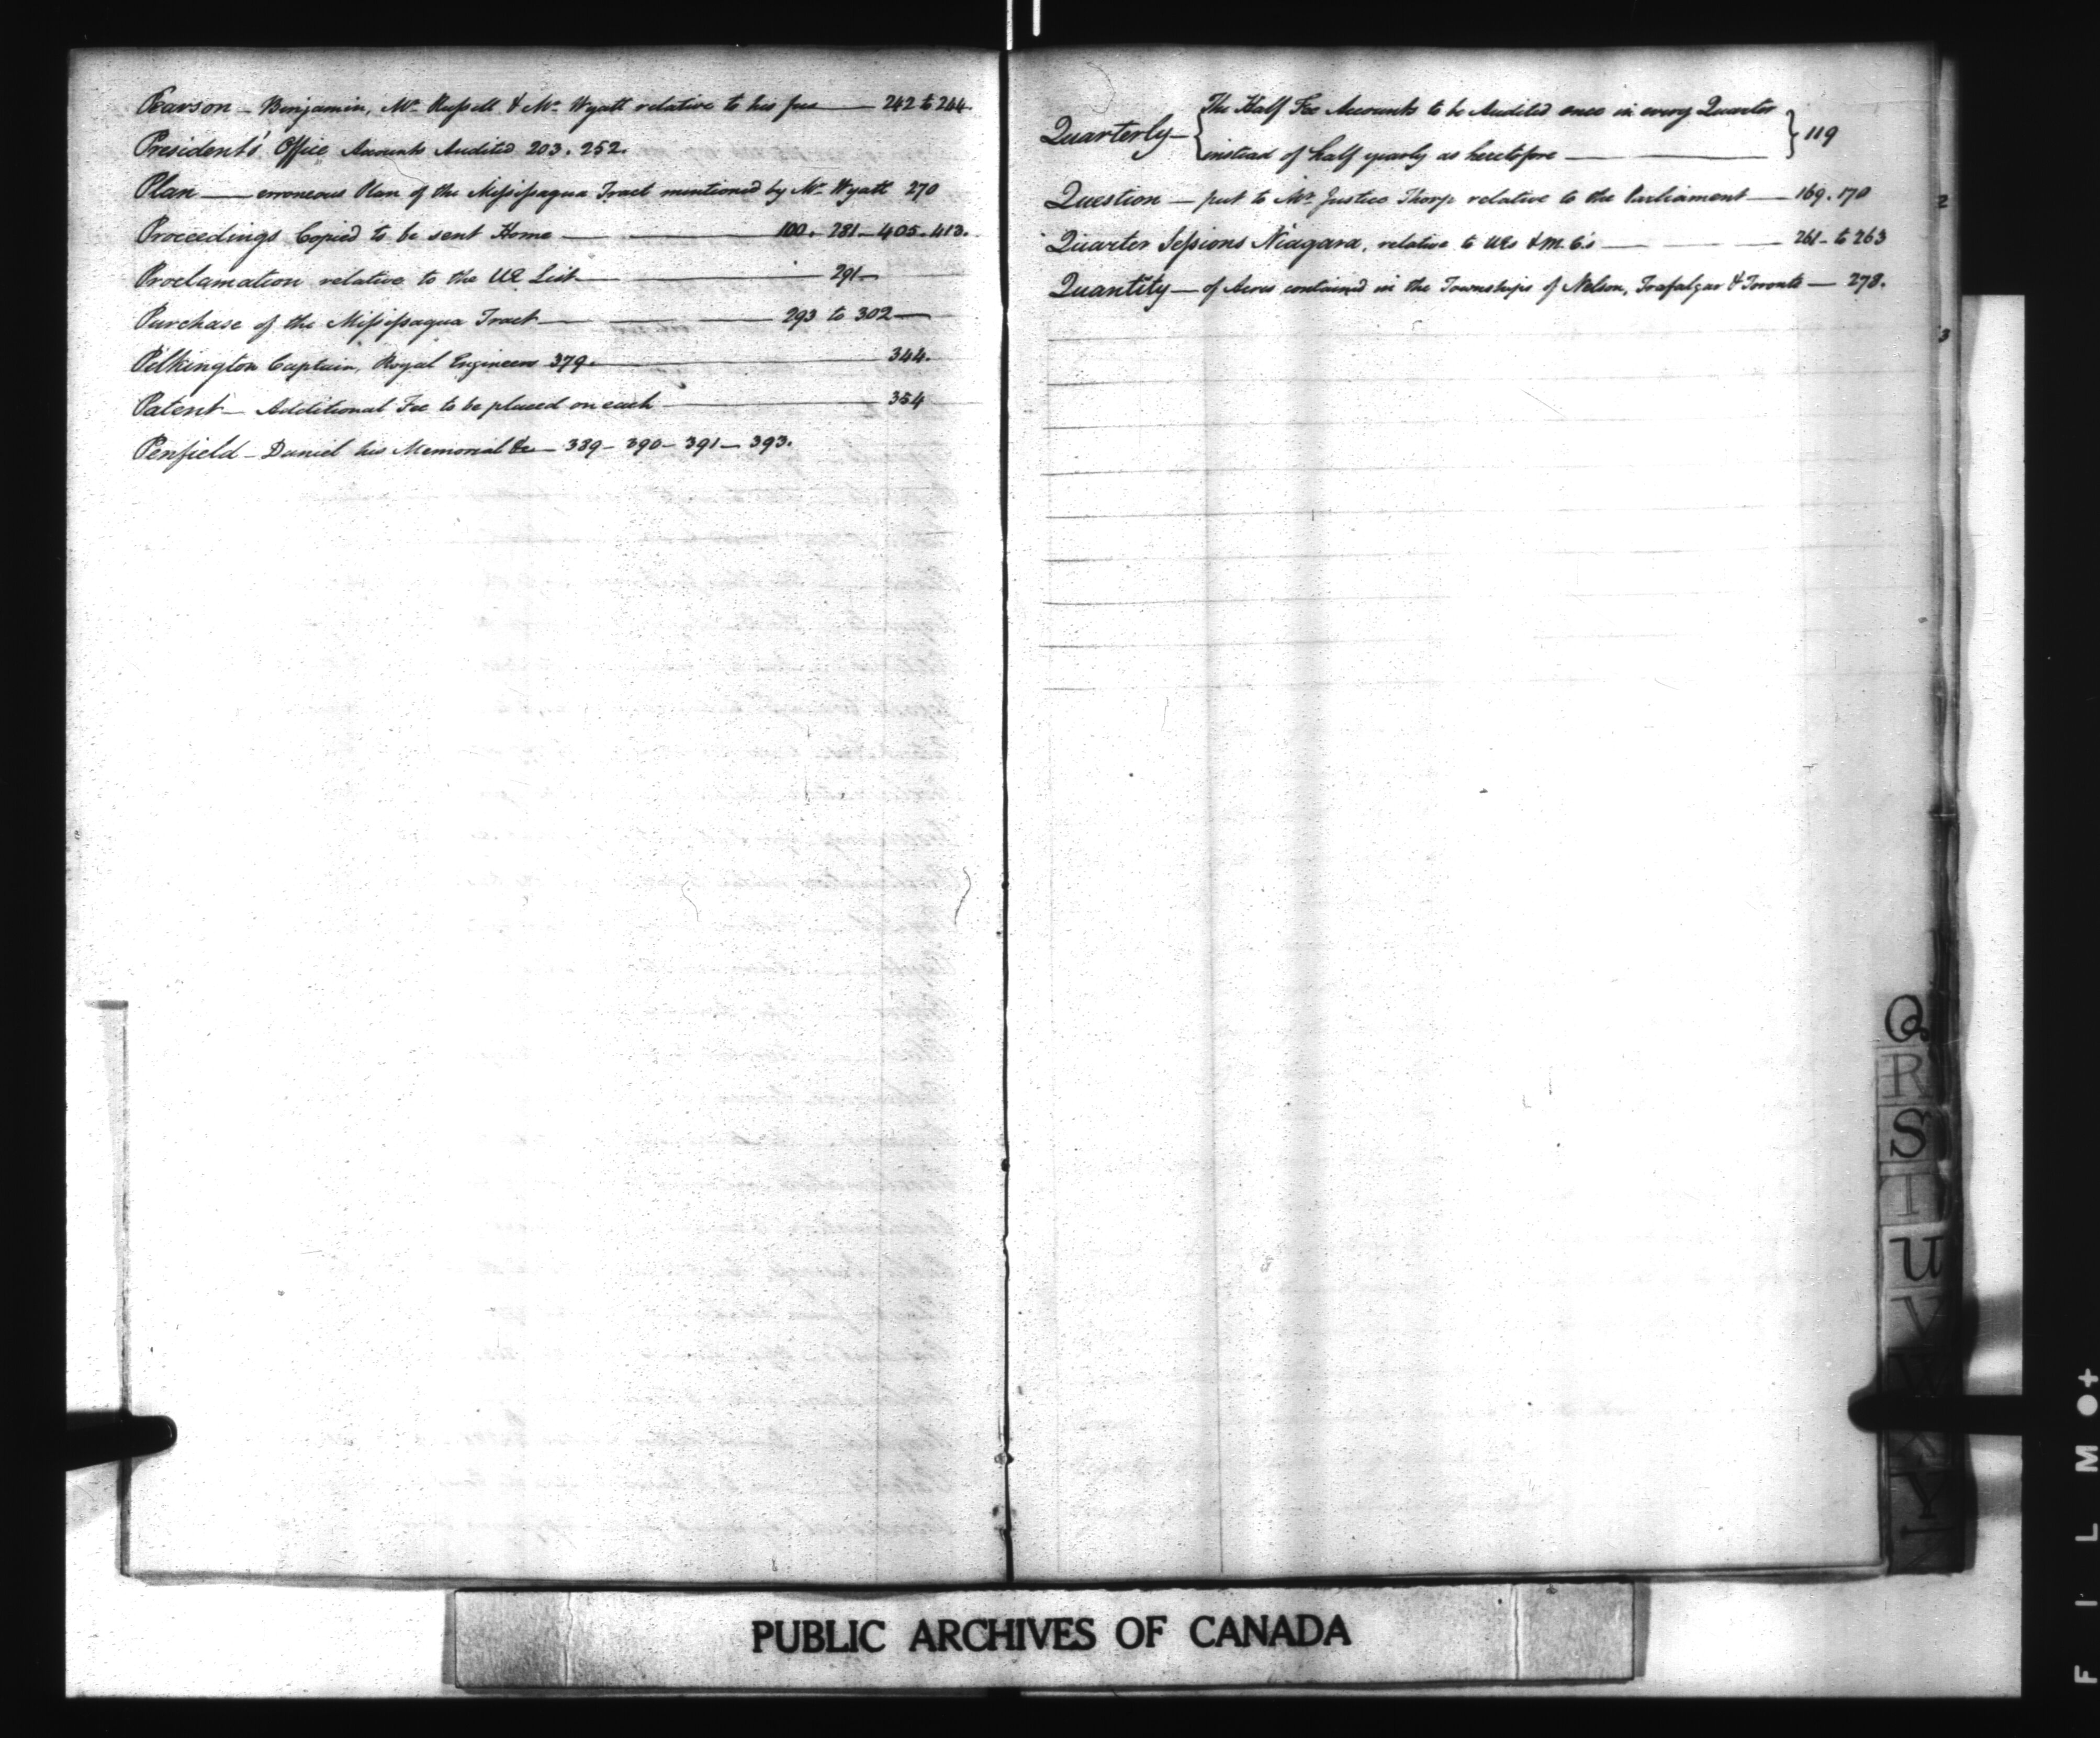 Pearson - Benjamin, Mr. Russell & Mr. Wyatt relative to his fees — 242 to 244.
President's Office Accounts Audited 203. 252.
Plan — erroneous Plan of the Missisaqua Tract mentioned by Mr. Wyatt 270
Proceedings Copied to be sent Home — 100. 281 - 405. 413.
Proclamation relative to the UE List — 291 —
Purchase of the Missisaqua Tract — 293 to 302 —
Pilkington Captain, Royal Engineers 379. — 344.
Patent — Additional Fee to be placed on each — 354
Penfield - Daniel his Memorial &c — 389 - 390 - 391 - 393.
Quarterly — { The Half Fee Accounts to be Audited once in every Quarter
instead of half yearly as heretofore — } 119
Question — put to Mr. Justice Thorp relative to the Parliament — 169. 170
Quarter Sessions Niagara, relative to UEs & M.C's — 261 - to 263
Quantity — of Acres contained in the Townships of Nelson, Trafalgar & Toronto — 278.
2
3
Q
R
S
T
U
V
W
X
Y
Z
PUBLIC ARCHIVES OF CANADA
FILM